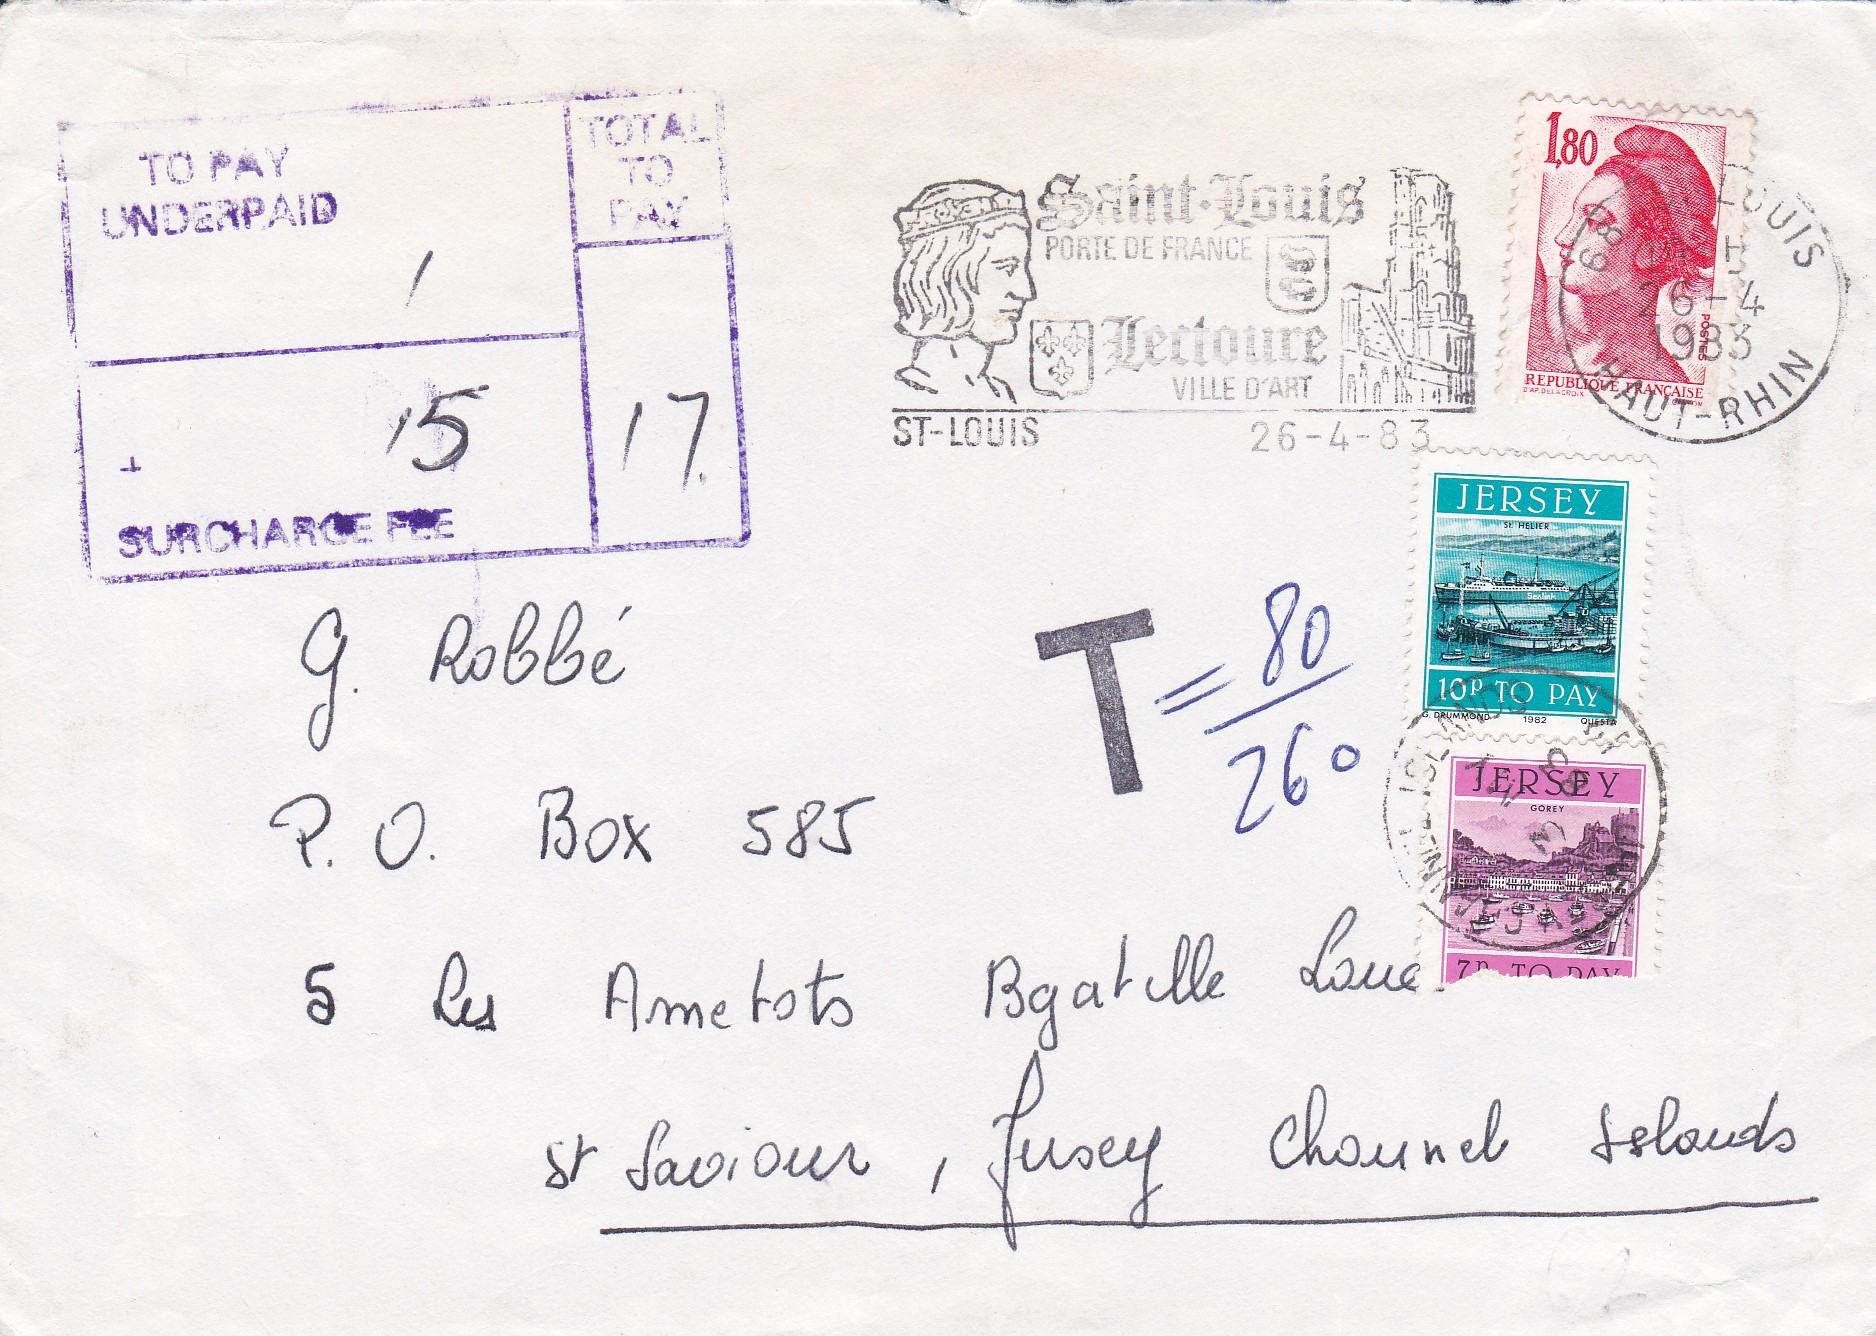 TO PAY
UNDERPAID
1
TOTAL
TO
PAY
+ 15
17.
SURCHARGE FEE
Saint-Louis
PORTE DE FRANCE
Lectoure
VILLE D'ART
ST-LOUIS
26-4-83
1,80
POSTES
REPUBLIQUE FRANÇAISE
D'AP. DELACROIX
68 LOUIS
H
26-4
1983
HAUT-RHIN
JERSEY
St. HELIER
Sealink
10P TO PAY
G. DRUMMOND 1982 QUESTA
JERSEY
GOREY
7P TO PAY
T = 80
260
G. Robbé
P. O. Box 585
5 Les Ametots Bgatelle Lane
St Saviour, Jersey Channel Islands